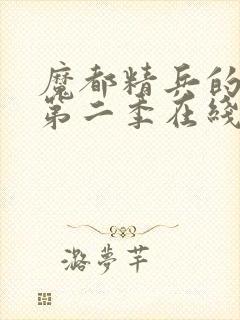 魔都精兵的
第二季在线
潞梦芊